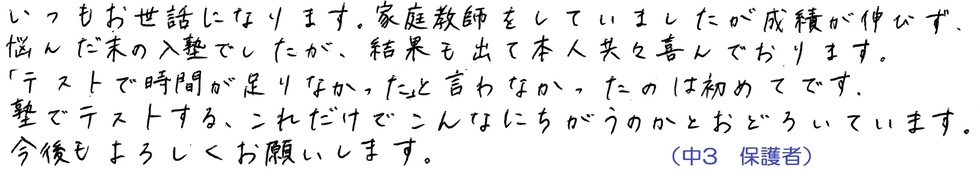 いつもお世話になります。家庭教師をしていましたが成績が伸びず、
悩んだ末の入塾でしたが、結果も出て本人共々喜んでおります。
「テストで時間が足りなかった」と言わなかったのは初めてです。
塾でテストする、これだけでこんなにちがうのかとおどろいています。
今後もよろしくお願いします。 （中3　保護者）